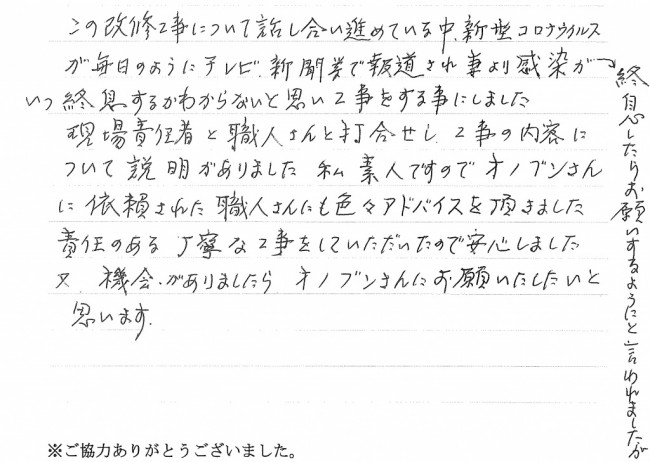 この改修工事について話し合い進めている中、新型コロナウイルス
が毎日のようにテレビ、新聞等で報道され妻より感染が
終息したらお願いするようにと言われましたが
いつ終息するかわからないと思い工事をする事にしました
現場責任者と職人さんと打合せし、工事の内容に
ついて説明がありました 私素人ですのでオノブンさん
に依頼された職人さんにも色々アドバイスを頂きました
責任のある丁寧な工事をしていただいたので安心しました
又、機会がありましたら オノブンさんにお願いいたしたいと
思います.
※ご協力ありがとうございました。